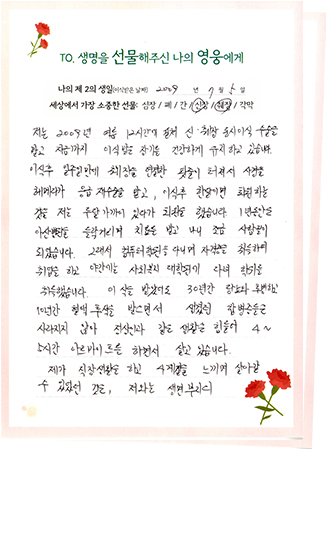 TO. 생명을 선물해주신 나의 영웅에게
나의 제 2의 생일(이식받은 날짜) 2009 년 7 월 5 일
세상에서 가장 소중한 선물: 심장 / 폐 / 간 / 신장 / 췌장 / 각막
저는 2009년 여름 12시간에 걸쳐 신·췌장 동시이식 수술을
받고 지금까지 이식받은 장기를 건강하게 유지하고 있습니다.
이식후 일주일만에 췌장을 연결한 핏줄이 터져서 사경을
헤매다가 응급 재수술을 받고, 이식후 한달이면 퇴원하는
것을 저는 두달 가까이 있다가 퇴원을 했습니다. 1년동안은
아산병원을 들락거리며 치료를 받고 나니 조금 사람몰이
되었습니다. 그래서 컴퓨터학원을 다니며 자격증을 취득하여
취업을 하고 야간에는 사회복지 대학원에 다녀 학위를
취득했습니다. 이식을 받았어도 30년간 당뇨와 투병하고
10년간 혈액투석을 받으면서 생겼던 합병증들은
사라지지 않아 정상인과 같은 생활은 힘들어 4~
5시간 아르바이트를 하면서 살고 있습니다.
제가 직장생활을 하고 4계절을 느끼며 살아갈
수 있었던 것은, 저와는 생면부지의